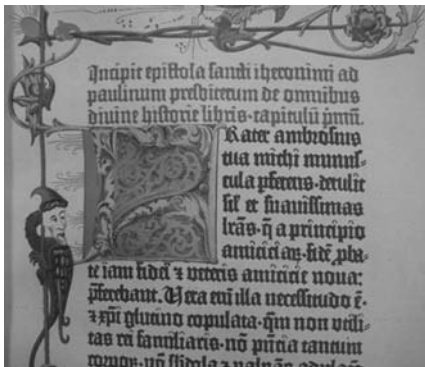 Incipit epistola sancti iheronimi ad
paulinum presbiterum de omnibus
divine historie libris. capitulū pͥmū.
FRater ambrosius
tua michi munus-
cula pferens. detulit
sil̄ et suavissimas
lr̄as. q̄ a principio
amiciciaꝝ. fidē ꝓba-
te iam fidei ⁊ veteris amicicie noua:
p̄ferebant. Vera eni illa necessitudo ē.
⁊ xp̄i glutino copulata. qm̄ non utili-
tas rei familiaris. nō p̄ncia tantum
corpoꝝ. nō sbdola ⁊ palpās adulacō